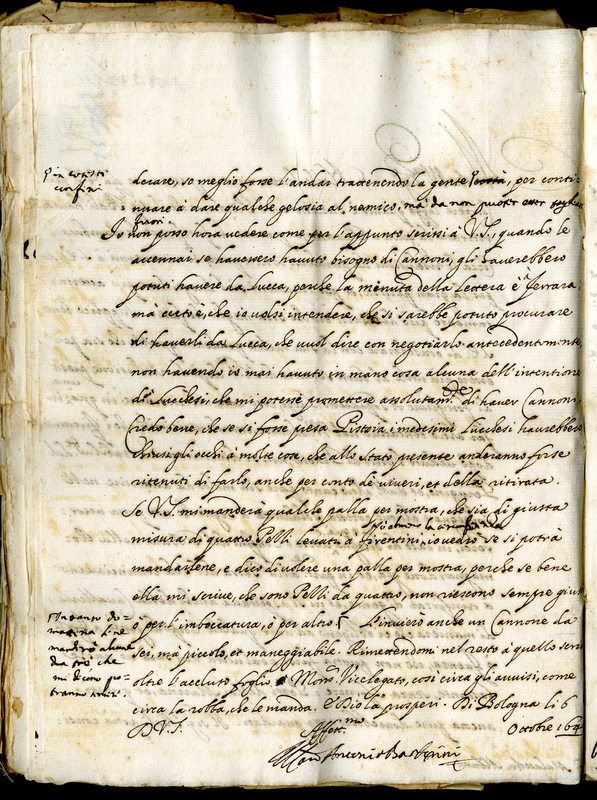 derare, se meglio fosse l'andar trattenendo la gente costà, per conti-
p in cotesti
confini
nuare à dare qualche gelosia al nemico, mà da non poter esser
fuori.
Io non posso hora vedere come per l'appunto scrissi à V.S., quando le
accennai se havessero havuto bisogno di Cannoni, gli haverebbero
potuti havere da Lucca, perche la minuta della lettera è in Ferrara
mà certo è, che io volsi intendere, che si sarebbe potuto procurare
di haverli da Lucca, che vuol dire con negotiarlo antecedentemente,
non havendo io mai havuto in mano cosa alcuna dell'intentione
de Lucchesi, che mi potesse promettere assolutam.te di haver Cannoni.
Credo bene, che se si fosse presa Pistoia i medesimi Lucchesi haurebbero
chiusi gli occhi à molte cose, che allo stato presente anderanno forse
ritenuti di farlo, anche per conto de viveri, et della ritirata.
Se V.S. mi manderà qualche palla per mostra, che sia di giusta
misura di quattro Pelli levati à Fiorentini, io vedrò se si potrà
mandarlene, e dico di volere una palla per mostra, perche se bene
ella mi scrive, che sono Pelli da quattro, non riescono sempre giusti
ò per l'imboccatura, ò per altro. L'invierò anche un Cannone da
In tanto do-
mattina li ne
manderò alcune
da trè che
mi dicono po-
tranno
sei, mà piccolo, et maneggiabile. Rimettendomi nel resto à quello
oltre l'accluso foglio Mons.r Vicelegato, così circa gli avvisi, come
circa la robba, che le manda. E Dio la prosperi. Di Bologna li 6
D.V.S.
Ottobre 164
Affett.mo
Il Card. Antonio Barberini